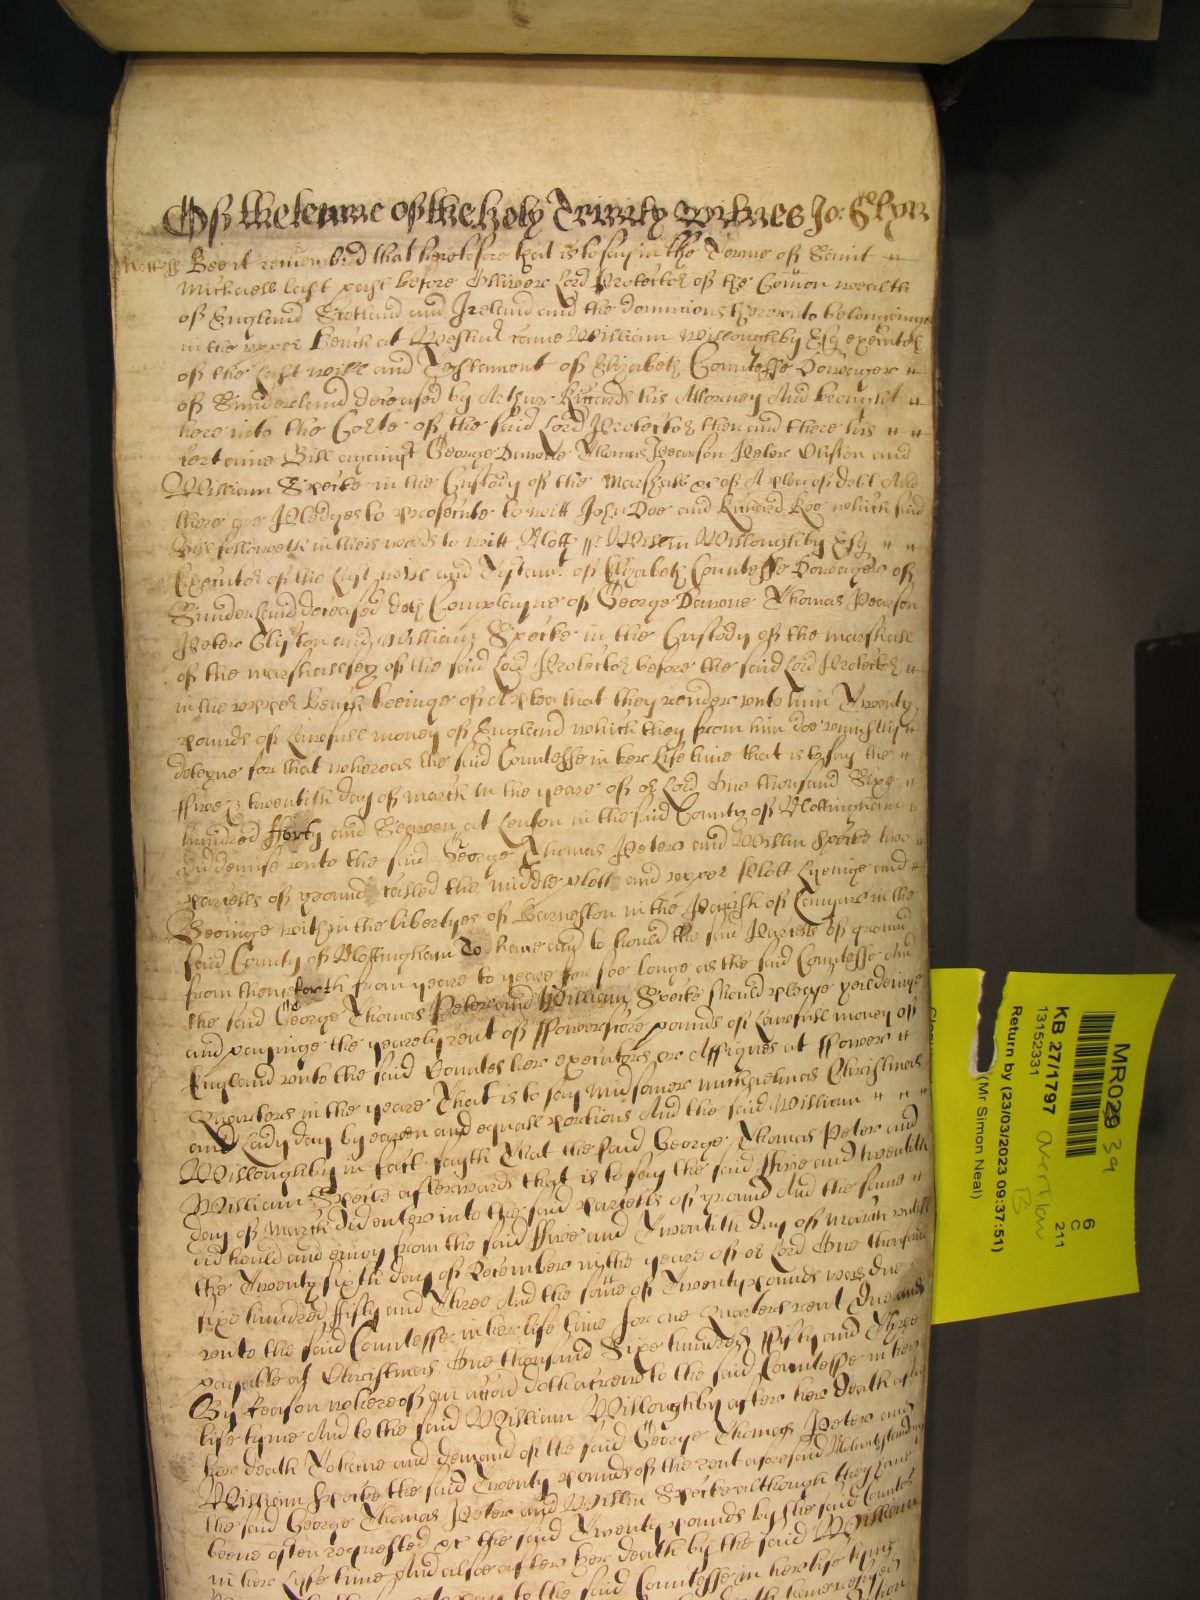 Of the terme of the holy Trinity Witnes Jo: Glyn
Nottss Bee it remembred that heretofore that is to say in the Terme of Saint
Michaell last past before Olliver Lord Protector of the Comon wealth
of England Scotland and Ireland and the dominions thereunto belonginge
in the upper Bench at Westmr came William Willoughby Esq executor
of the last will and Testament of Elizabeth Countesse Dowager
of Sunderland deceased by Arthur his Attorney And brought
here into the Corte of the said Lord Protector then and there his
certaine Bill against George Thomas Pearson Peter Clifton and
William Specke in the Custody of the Marshall &c of A plea of debt And
there are Pledges to prosecute to witt John Doe and Richard Roe which said
Bill followeth in theis words to witt Nott ss Willm Willoughby Esq
Executor of the Last will and Testamt of Elizabeth Countesse Dowager of
Sunderland deceased doth Complayne of George Thomas Pearson
Peter Clifton and William Specke in the Custody of the marshall
of the marshallsey of the said Lord Protector before the said Lord Protector
in the upper Bench beeinge of A plea that they render unto him Twenty
pounds of Lawfull money of England which they from him doe uniustly
deteyne for that whereas the said Countesse in her life time that is to say the
ffive & twentith day of march in the yeare of or Lord One thousand Sixe
hundred fforty and Seaven at Lenton in the said County of Nottingham
did demise unto the said George Thomas Peter and Willm Specke two
parcells of ground called the middle plott and upper plott Lyeinge and
Beeinge within the libertyes of Barneston in the Parish of Langar in the
said County of Nottingham To have and to hould the said Parcells of ground
from thenceforth from yeare to yeare for soe longe as the said Countesse and
the said George Thomas Peter and William Specke should please yeeldinge
and payinge the yearely rent of ffowerscore pounds of Lawfull money of
England unto the said Countes her executors or Assignes at ffower
Quarters in the yeare That is to say midsomer michaelmas Christmas
and Lady day by eaven and equall portions And the said William
Willoughby in fact sayth That the said George Thomas Peter and
William Specke afterwards that is to say the said ffive and twentith
day of March did enter into the said parcells of ground And the same
did hould and enioy from the said ffive and Twentith day of march untill
the Twenty sixth day of December in the yeare of or Lord One thousand
sixe hundred ffifty and Three And the same of Twenty pounds was due
unto the said Countesse in her life time for one Quarters rent Due and
payable at Christmas One thousand Sixe hundred ffifty and Three
By Reason whereof an accon doth accrew to the said Countesse in her
life tyme And to the said William Willoughby after her death
her death To have and demand of the said George Thomas Peter and
William Specke the said Twenty pounds of the rent aforesaid Notwithstanding
the said George Thomas Peter and Willm Specke although they have
beene often requested &c the said Twenty pounds by the said Countes
in her Lyfe time And alsoe after her death by the said William
to the said Countesse in her life tyme
MR029 39
KB 27/1797
13152331
Return by (23/03/2023 09:37:51)
(Mr Simon Neal)
6
C
211